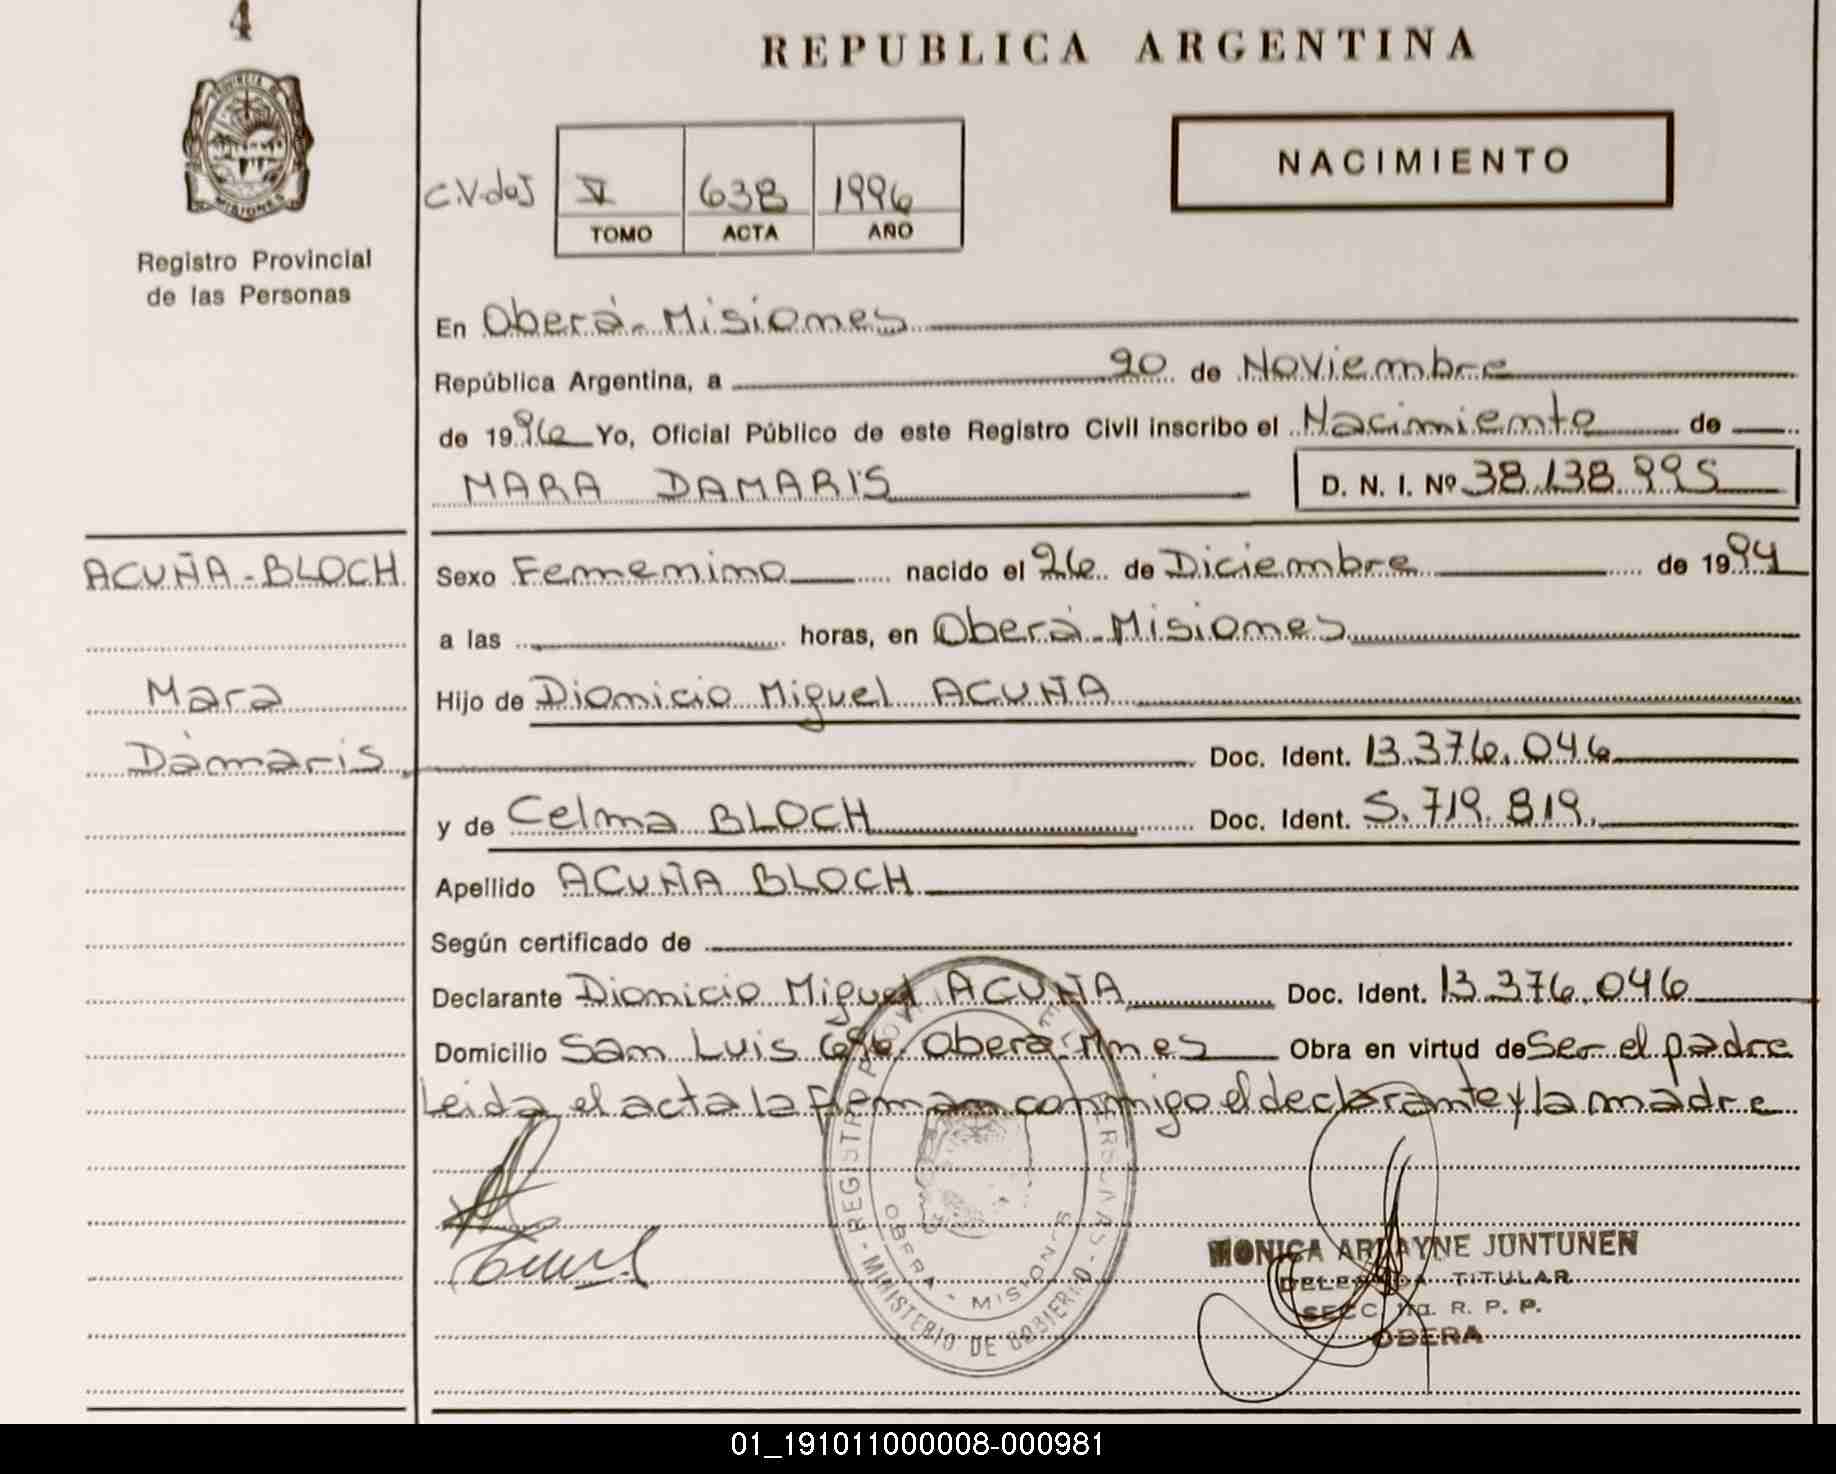 4
PROVINCIA DE
MISIONES
Registro Provincial
de las Personas
REPUBLICA ARGENTINA
NACIMIENTO
V 638 1996
TOMO ACTA AÑO
En Oberá - Misiones
República Argentina, a 20 de Noviembre
de 1996 Yo, Oficial Público de este Registro Civil inscribo el Nacimiento de
MARA DAMARIS D. N. I. Nº 38.138.995
ACUÑA-BLOCH
Mara
Dámaris
Sexo Femenino nacido el 26 de Diciembre de 1994
a las horas, en Oberá - Misiones
Hijo de Dionicio Miguel ACUÑA
Doc. Ident. 13.376.046
y de Celma BLOCH Doc. Ident. 5.719.819.
Apellido ACUÑA BLOCH
Según certificado de
Declarante Dionicio Miguel ACUÑA Doc. Ident. 13.376.046
Domicilio San Luis Oberá Mnes Obra en virtud de Ser el padre
Leida el acta la firman conmigo el declarante y la madre
REGISTRO PROV DE LAS PERSONAS - MINISTERIO DE GOBIERNO -
OBERA - MISIONES
MONICA JUNTUNEN
DELEGADA TITULAR
SECC. R. P. P.
OBERA
01_191011000008-000981